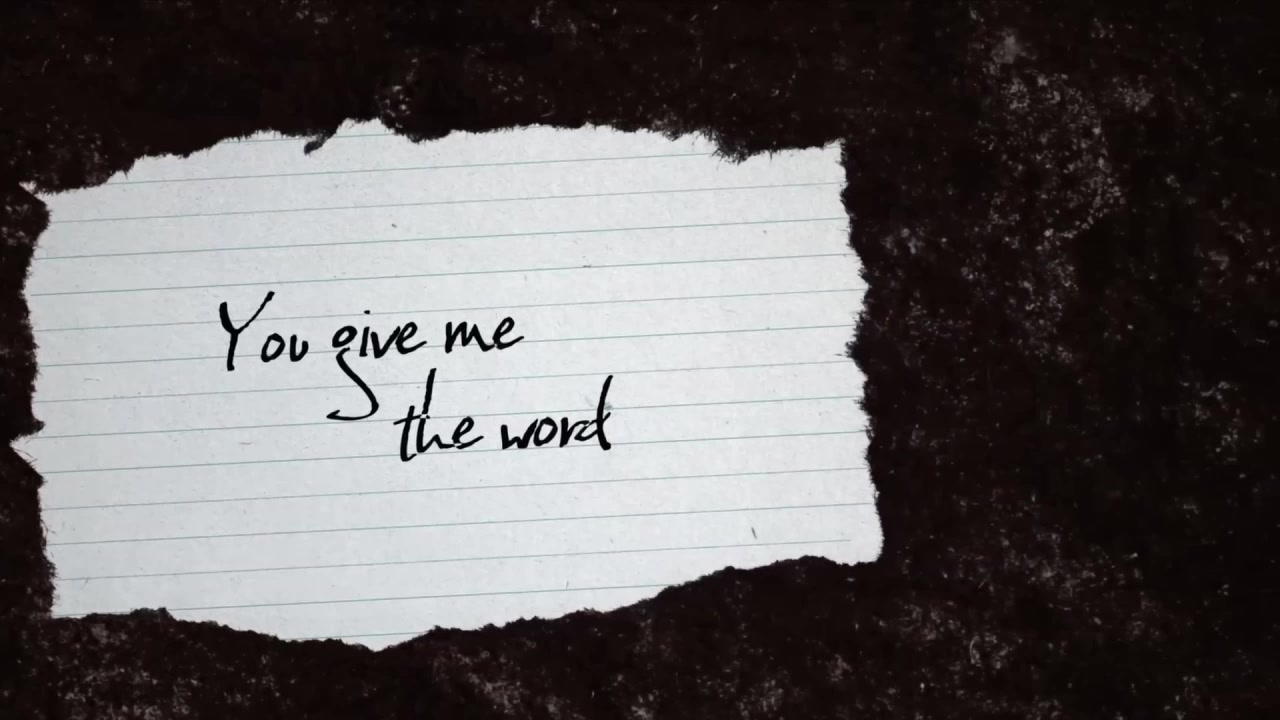 You give me
the word